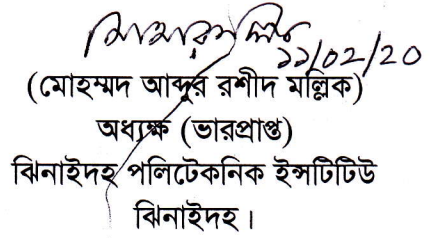 ১১/০২/২০
(মোহম্মদ আব্দুর রশীদ মল্লিক)
অধ্যক্ষ (ভারপ্রাপ্ত)
ঝিনাইদহ পলিটেকনিক ইন্সটিটিউ
ঝিনাইদহ।